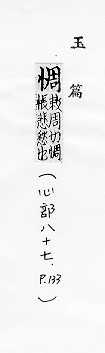 玉篇
惆 敕周切惆
悵悲愁也
(心部八十七. P.133)